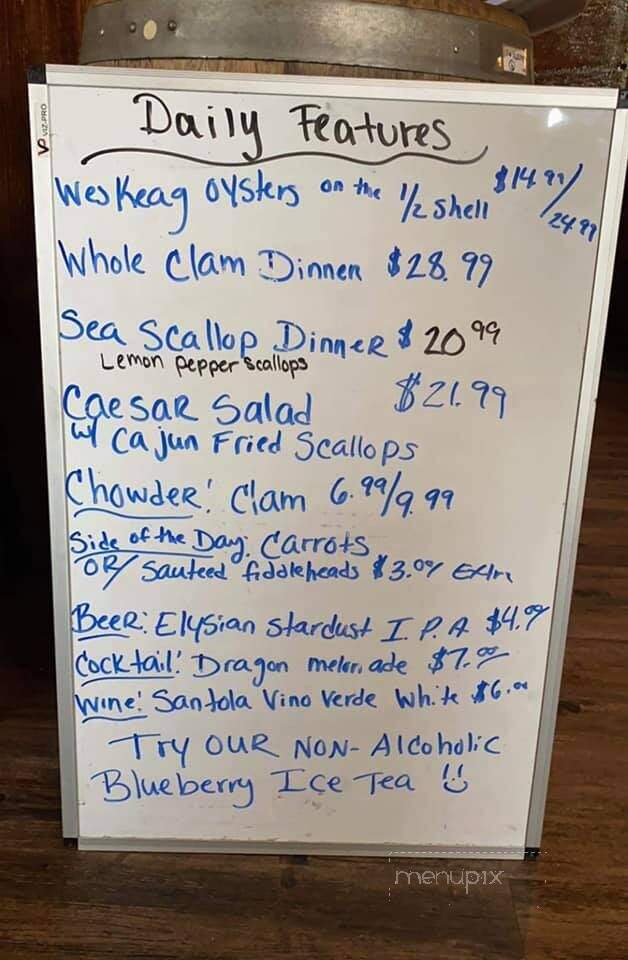 VIZ-PRO
Daily Features
Weskeag Oysters on the 1/2 Shell $14.99/24.99
Whole Clam Dinner $28.99
Sea Scallop Dinner $20.99
Lemon pepper scallops
Caesar Salad $21.99
w/ Cajun Fried Scallops
Chowder! Clam 6.99/9.99
Side of the Day: Carrots
OR/ Sauteed fiddleheads $3.09 Extra
Beer: Elysian Stardust I.P.A $4.99
Cocktail! Dragon melon ade $7.00
Wine! Santola Vino Verde White $6.00
Try our Non-Alcoholic
Blueberry Ice Tea
menupix